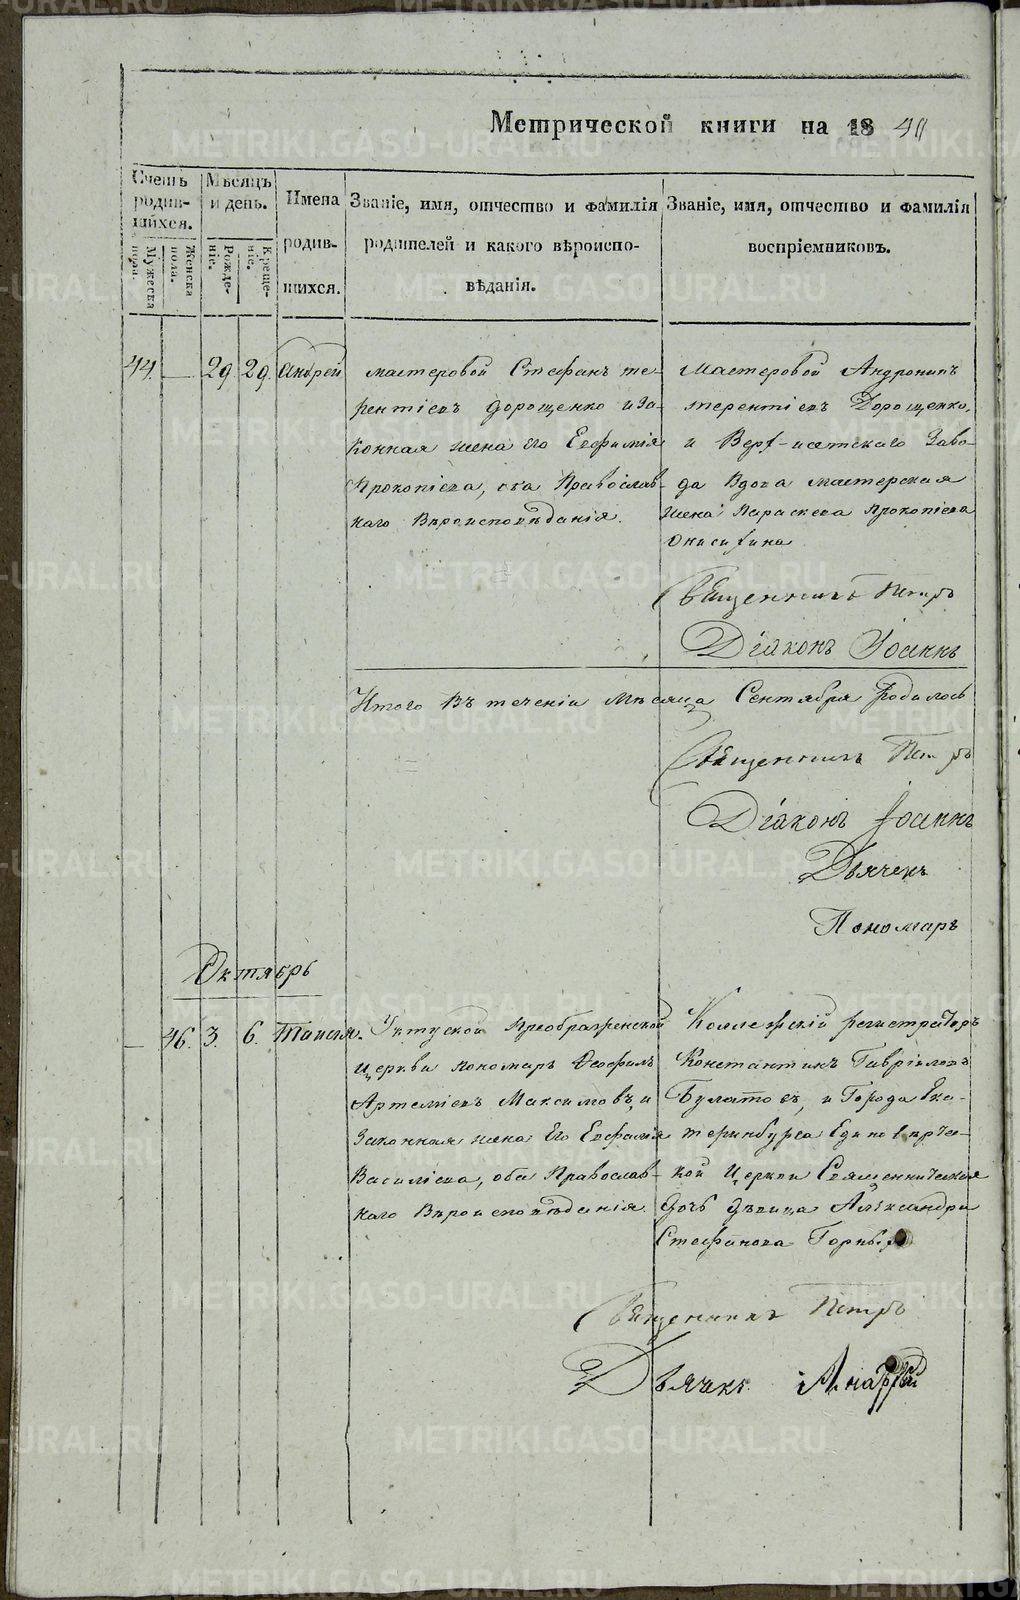 Метрической книги на 18
Счетъ родив-шихся.
Мужеска пола.
Женска пола.
Мѣсяцъ и день.
Рожде-ніе.
Креще-ніе.
Имена родив-шихся.
Званіе, имя, отчество и фамилія родителей и какого вѣроиспо-вѣданія.
Званіе, имя, отчество и фамилія воспріемниковъ.
44. — 29. 29. Андрей
мастеровой Стефанъ Те-
рентіевъ Дорощенко и за-
конная жена его Евфимія
Прокопіева, оба Православ-
наго Вѣроисповѣданія.
Мастеровой Андроникъ
терентіевъ Дорощенко,
и Верх-исетскаго Заво-
да Вдова мастерская
жена Параскева Прокопіева
Онисифина
Священникъ Петръ
Діаконъ Іоаннъ
Итого Въ теченіи Мѣсяца Сентября Родилось
Священникъ Петръ
Діаконъ Іоаннъ
Дьячекъ
Пономарь
Октябрь
— 46. 3. 6. Таисія.
Уктуской Преображенской
церкви пономарь Феофилъ
Артеміевъ Максимовъ, и
Законная жена Его Евфимія
Василіева, оба Православ-
наго Вѣроисповѣданія.
Коллежскій регистраторъ
Константинъ Гавріиловъ
Булатовъ, и Города Ека-
теринбурга Единовѣрчес-
кой Церкви Священническая
дочь дѣвица Александра
Стефанова
Священникъ Петръ
Дьячкъ
METRIKI.GASO-URAL.RU